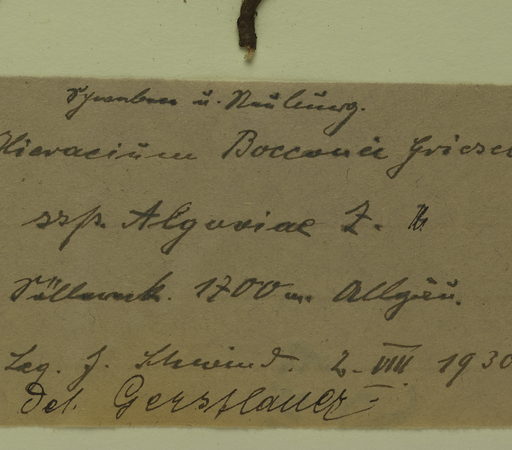 Schwaben u. Neuburg.
Hieracium Bocconei Griseb
ssp. Algoviae Z.
Söllereck. 1700 m. Allgäu.
Leg. J. Schwind. 2. VIII 1930
det. Gerstlauer